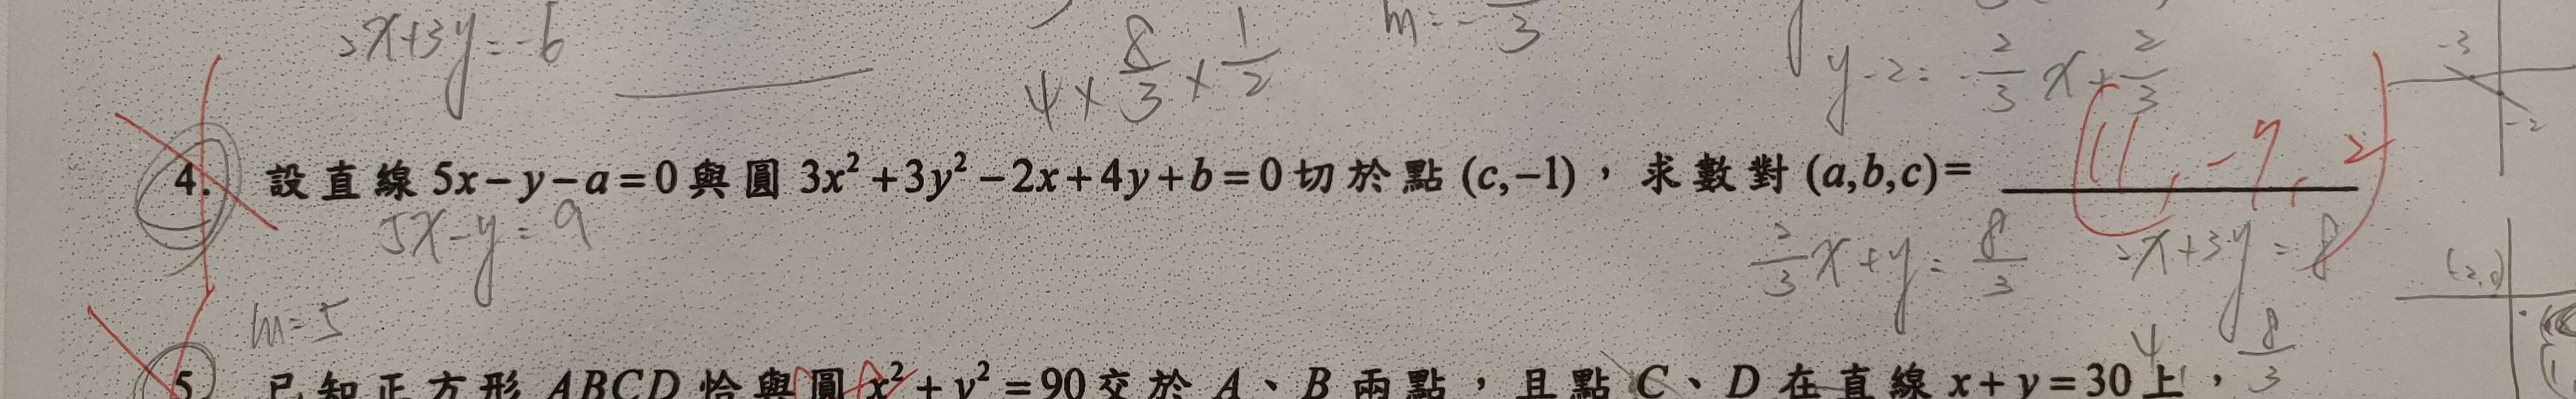 2x+3y=-6
4×8/3×1/2
m=-
3
y-2=-2/3x+2/3
-3
-2
4. 設直線 5x-y-a=0 與圓 3x²+3y²-2x+4y+b=0 切於點 (c,-1)，求數對 (a,b,c)= (11,-9,2)
5x-y=a
2/3x+y=8/3
2x+3y=8
(-2,0)
m=5
4
8/3
5. 已知正方形 ABCD 恰與圓 x²+y²=90 交於 A、B 兩點，且點 C、D 在直線 x+y=30 上，